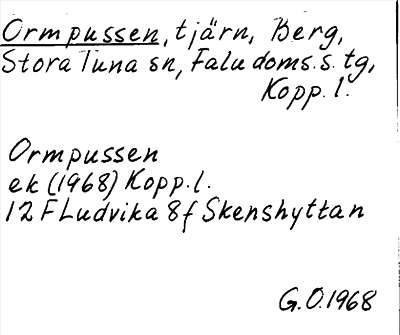 Ormpussen, tjärn, Berg,
Stora Tuna sn, Falu doms.s. tg,
Kopp. l.
Ormpussen
ek (1968) Kopp. l.
12 F Ludvika 8 f Skenshyttan
G.O. 1968